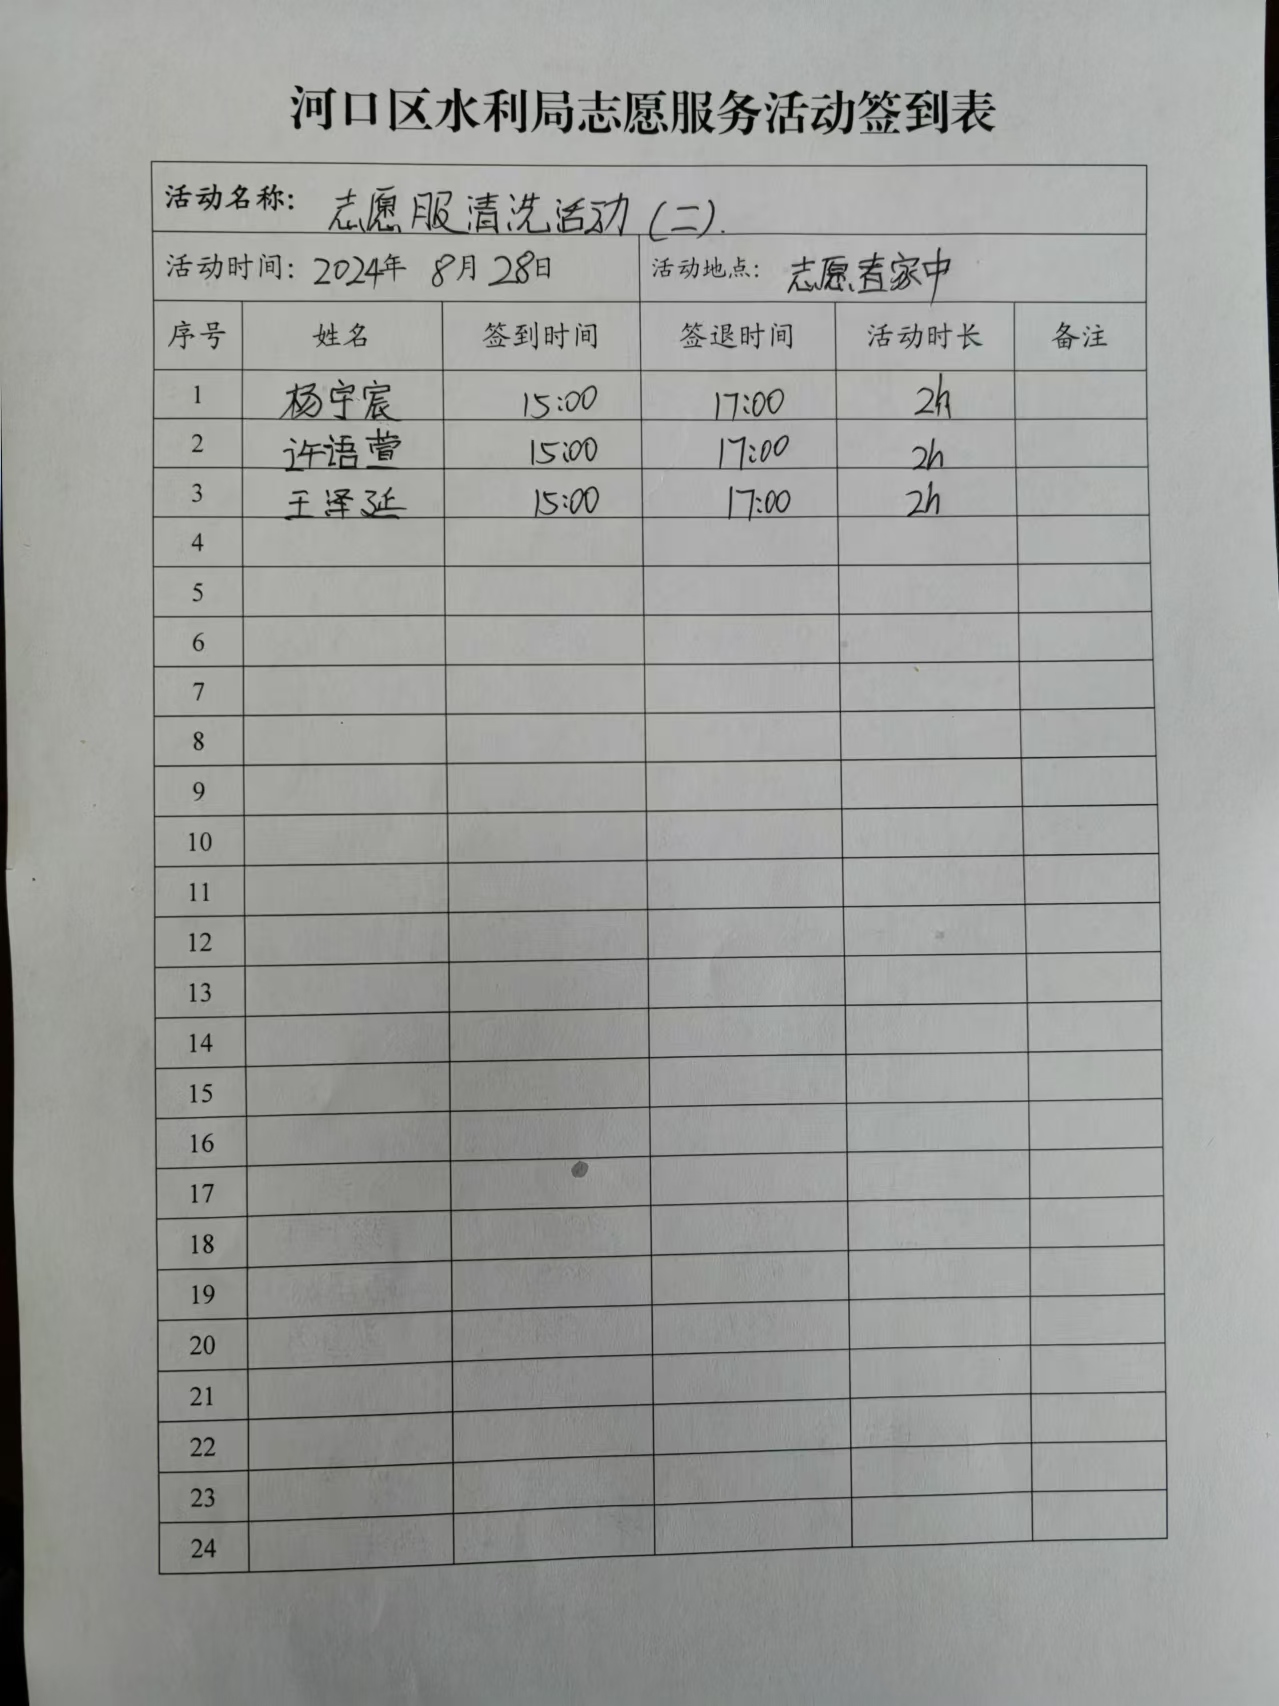 河口区水利局志愿服务活动签到表
活动名称: 志愿服清洗活动(二).
活动时间: 2024年 8月 28日 活动地点: 志愿者家中
序号 姓名 签到时间 签退时间 活动时长 备注
1 杨宇宸 15:00 17:00 2h
2 许语萱 15:00 17:00 2h
3 王泽延 15:00 17:00 2h
4
5
6
7
8
9
10
11
12
13
14
15
16
17
18
19
20
21
22
23
24